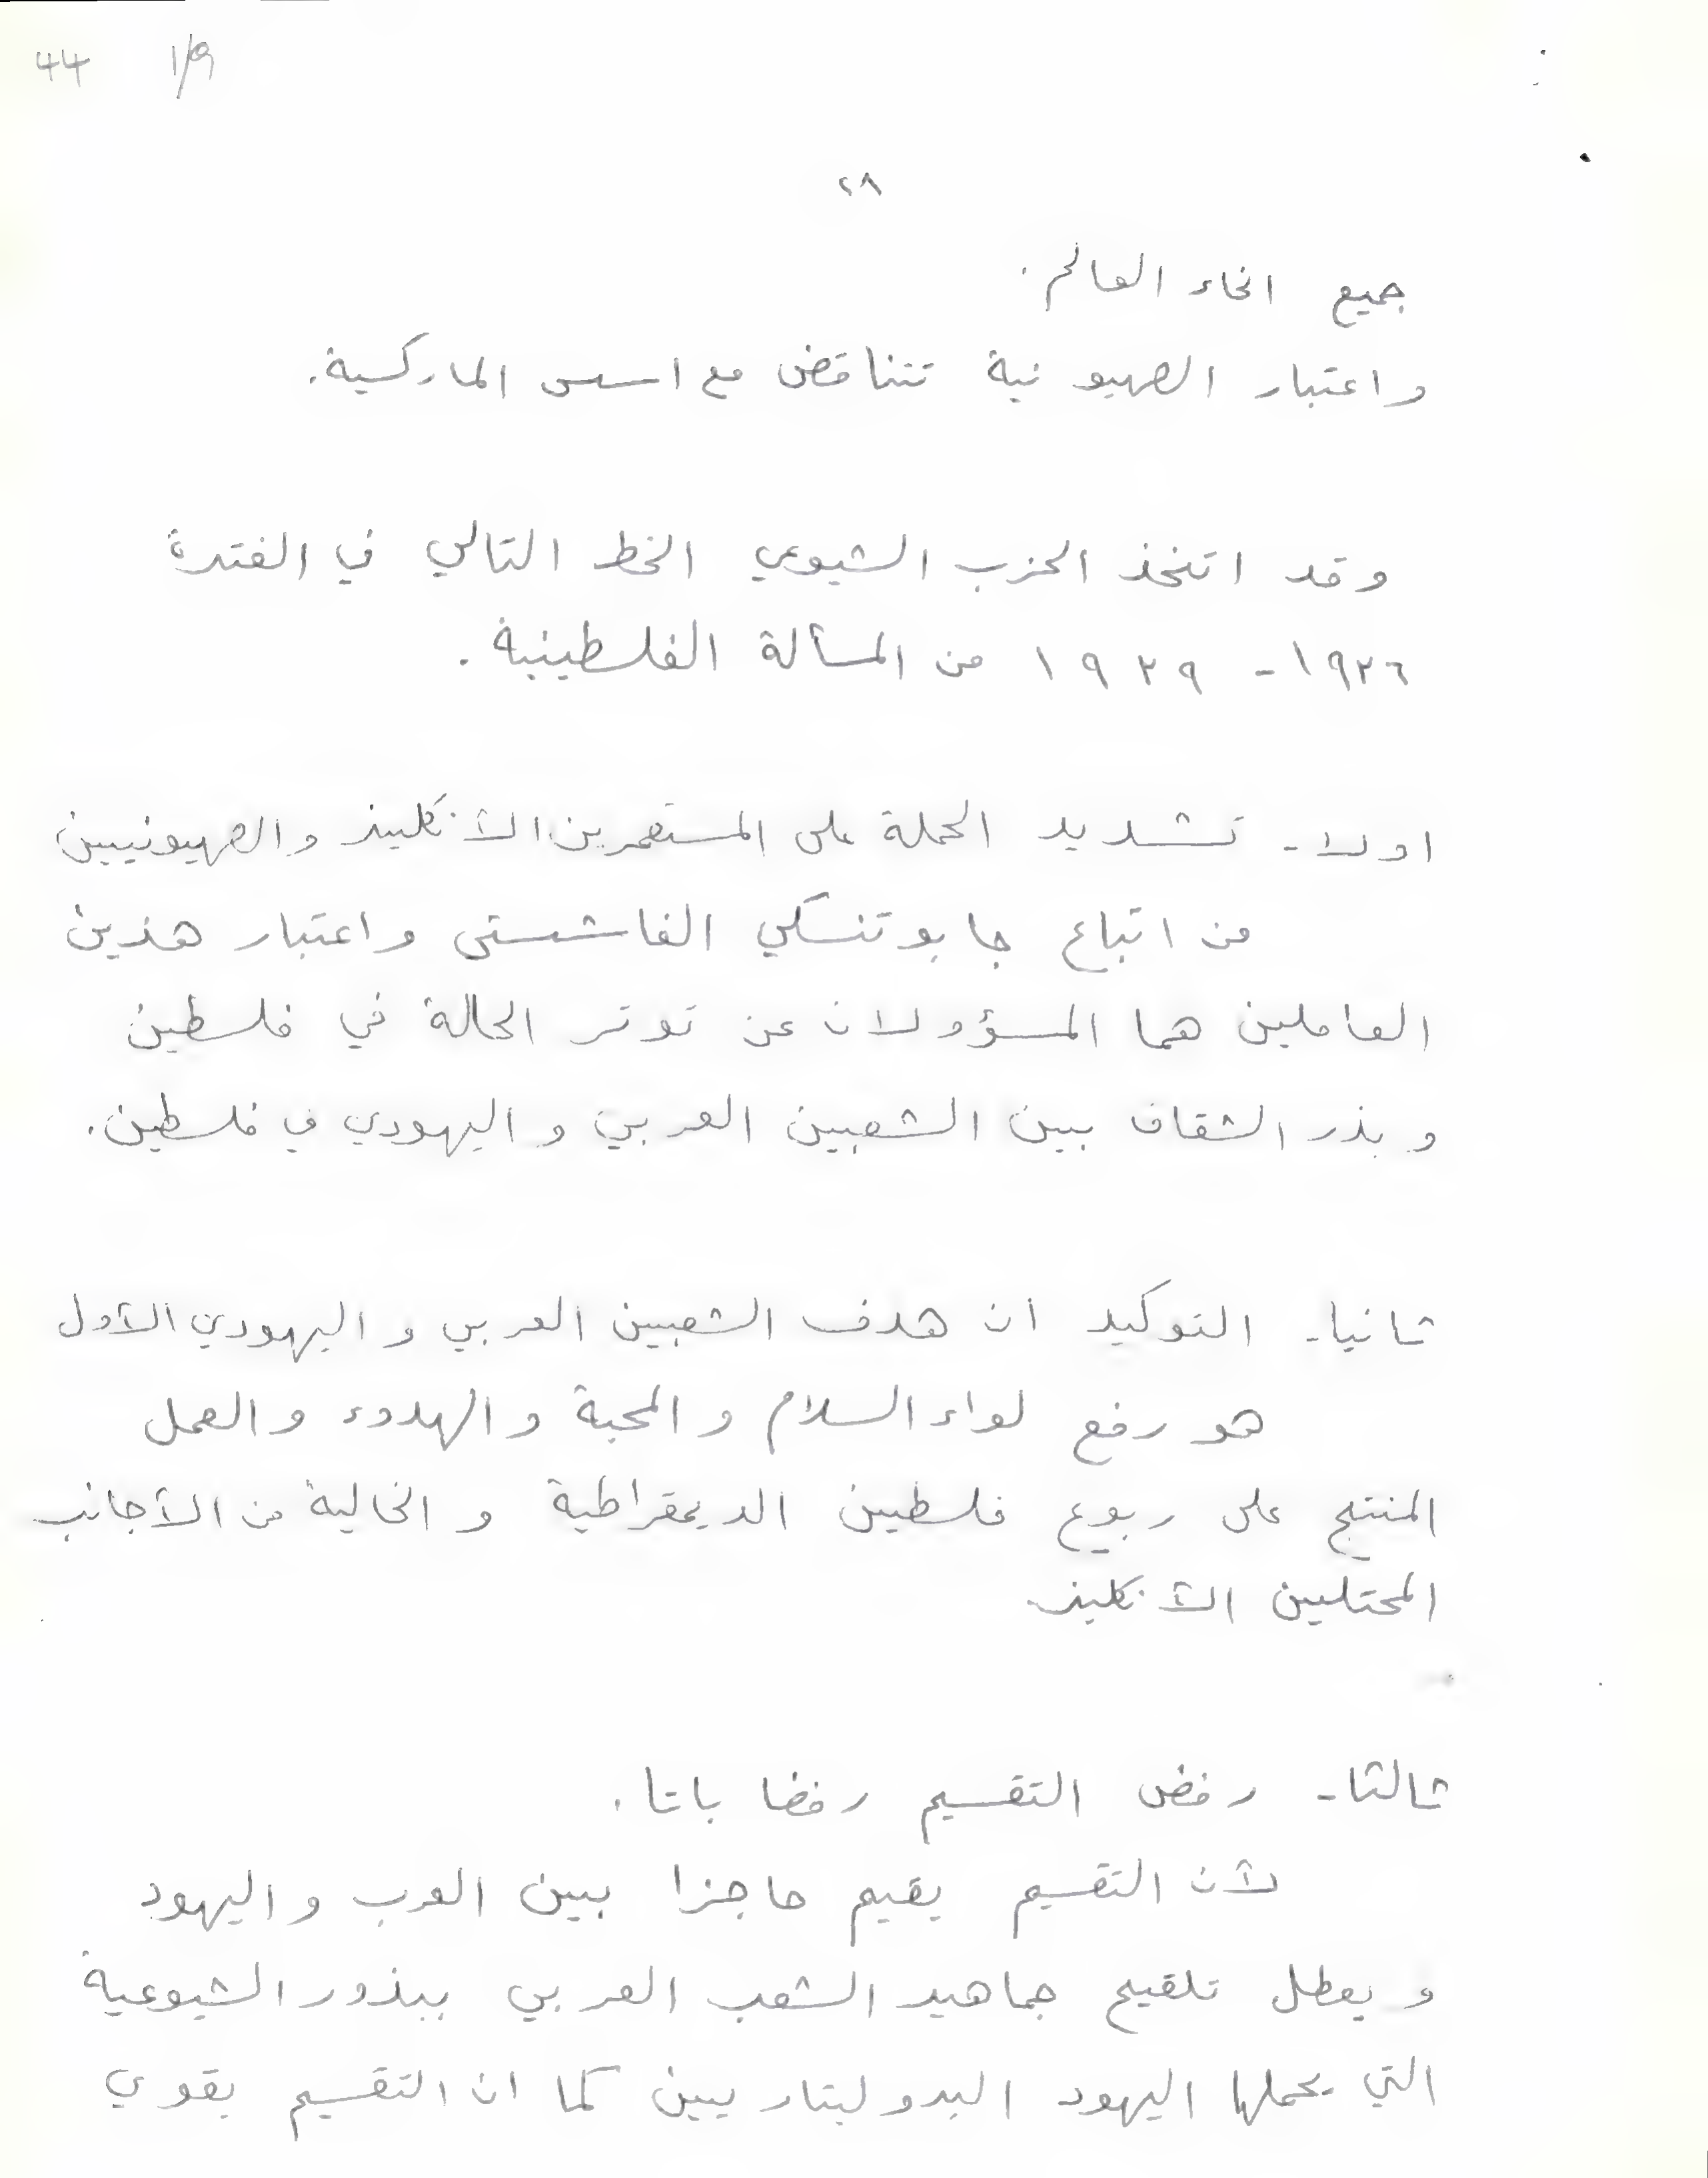 44 1/9
٢٨
جميع انحاء العالم.
واعتبار الصهيونية تتناقض مع اسس الماركسية.
وقد اتخذ الحزب الشيوعي الخط التالي في الفترة
١٩٣٦ - ١٩٣٩ من المسألة الفلسطينية.
اولا - تشديد الحملة على المستعمرين الأنكليز والصهيونيين
من اتباع جابوتنسكي الفاشستي واعتبار هذين
العاملين هما المسؤولان عن توتر الحالة في فلسطين
وبذر الشقاق بين الشعبين العربي واليهودي في فلسطين.
ثانيا - التوكيد ان هدف الشعبين العربي واليهودي الأول
هو رفع لواء السلام والمحبة والهدوء والعمل
المنتج على ربوع فلسطين الديمقراطية والخالية من الأجانب
المحتلين الأنكليز.
ثالثا - رفض التقسيم رفضا باتا.
لأن التقسيم يقيم حاجزا بين العرب واليهود
ويعطل تلقيح جماهير الشعب العربي ببذور الشيوعية
التي يحملها اليهود البروليتاريين كما ان التقسيم يقوي